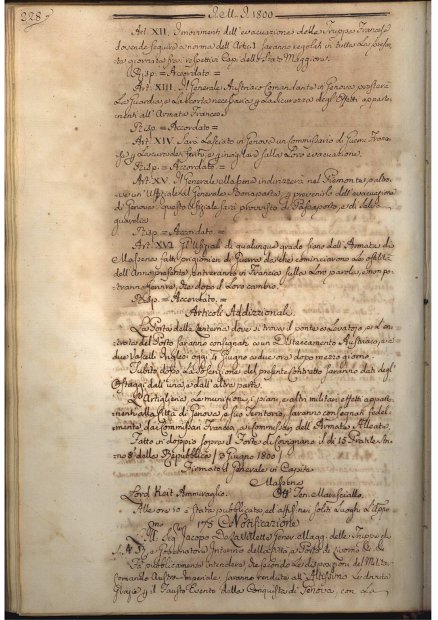 228
1800
Art. XII. I movimenti dell'evacuazione delle Truppe Francesi
dovendo seguire a norma dell'Artic. 1 saranno regolati in tutta la
giornata fra i rispettivi Capi dello Stato Maggiore.
Risp. = Accordato =
Art. XIII. Il Generale Austriaco Comandante in Genova presterà
le Guardie, e le Scorte necessarie per la sicurezza degli Effetti apparte-
nenti all'Armata Francese.
Risp. = Accordato =
Art. XIV. Sarà lasciato in Genova un Commissario di Guerra Fran-
cese per la cura de' feriti, e vigilare sulla loro evacuazione.
Risp. = Accordato =
Art. XV. Il Generale Massena indirizzerà nel Piemonte, o altro-
ve un Uffiziale al Generale Bonaparte per prevenirlo dell'evacuazione
di Genova. Questo Uffiziale sarà provvisto di Passaporto, e di Salva-
guardia.
Risp. = Accordato =
Art. XVI. Gl'Uffiziali di qualunque grado siano dell'Armata di
Massena fatti prigionieri di Guerra da che cominciarono le ostilità
dell'Anno presente entreranno in Francia sulla loro parola, e non po-
tranno servire, che dopo il loro cambio.
Risp. = Accordato. =
Articoli Addizzionali.
La Porta della Lanterna dove si trova il ponte a levatojo, e l'en-
trata del Porto saranno consegnati a un Distaccamento Austriaco, e a
due Vascelli Inglesi oggi 4 Giugno a due ore dopo mezzo giorno.
Subito dopo la soscrizione del presente Contratto saranno dati degl'
Ostaggi dall'una, e dall'altra parte.
L'Artiglieria, le munizioni, i piani, e altri militari effetti apparte-
nenti alla Città di Genova, e suo Territorio, saranno consegnati fedel-
mente da' Commissari Francesi, a' Commissari dell'Armata Alleata.
Fatto in doppio sopra il Ponte di Cornigliano il dì 15 Pratile An-
no 8 della Repubblica 4 Giugno 1800
Firmato il Generale in Capite
Massena
Lord Keit Ammiraglio. Ott Ten. Maresciallo.
Alle ore 10 è stata pubblicata, ed affissa ne' soliti Luoghi l'appo-
175 Notificazione
fa pubblicamente intendere, che secondo le disposizioni del Mili-
Comando Austro-Imperiale saranno rendute all'Altissimo le dovute
Grazie per il fausto Evento della Conquista di Genova con la